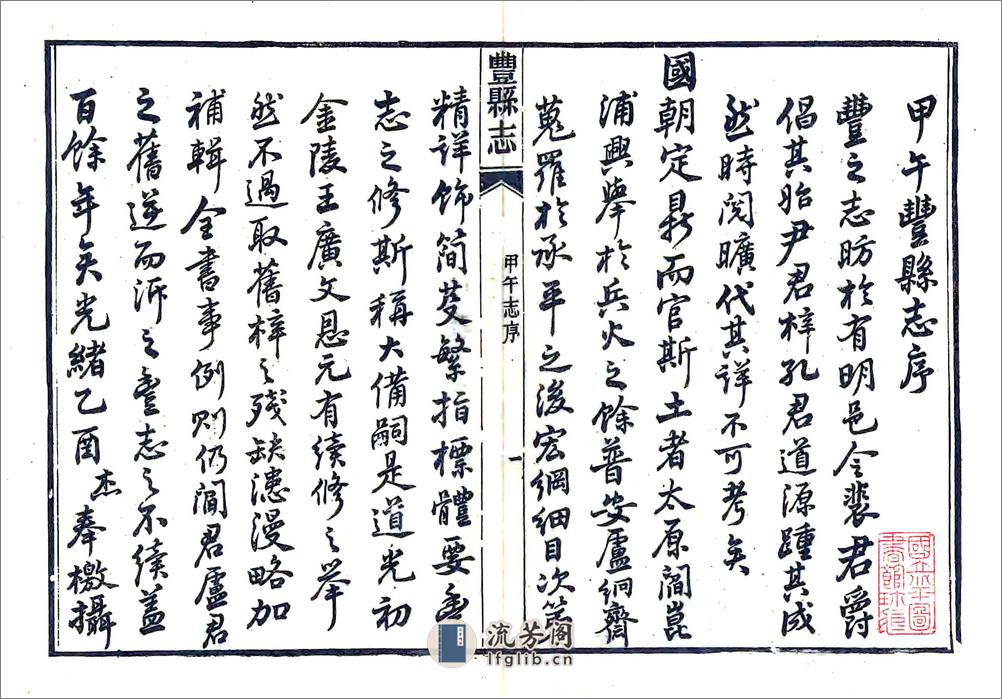 甲午豐縣志序
豐之志昉於有明邑令裴君爵
倡其始尹君梓孔君道源踵其成
然時閱曠代其詳不可考矣
國朝定鼎而官斯土者太原閻崑
浦興舉於兵火之餘普安盧絅齋
蒐羅於承平之後宏綱細目次第
豐縣志
甲午志序
一
精詳飾簡芟繁指標體要豐
志之修斯稱大備嗣是道光初
金陵王廣文懸元有續修之舉
然不過取舊梓之殘缺漶漫略加
補輯全書事例則仍閻君盧君
之舊遡而泝之豐志之不續蓋
百餘年矣光緒乙酉杰奉檄攝
國立北平圖
書館珍藏
流芳阁
lfglib.cn